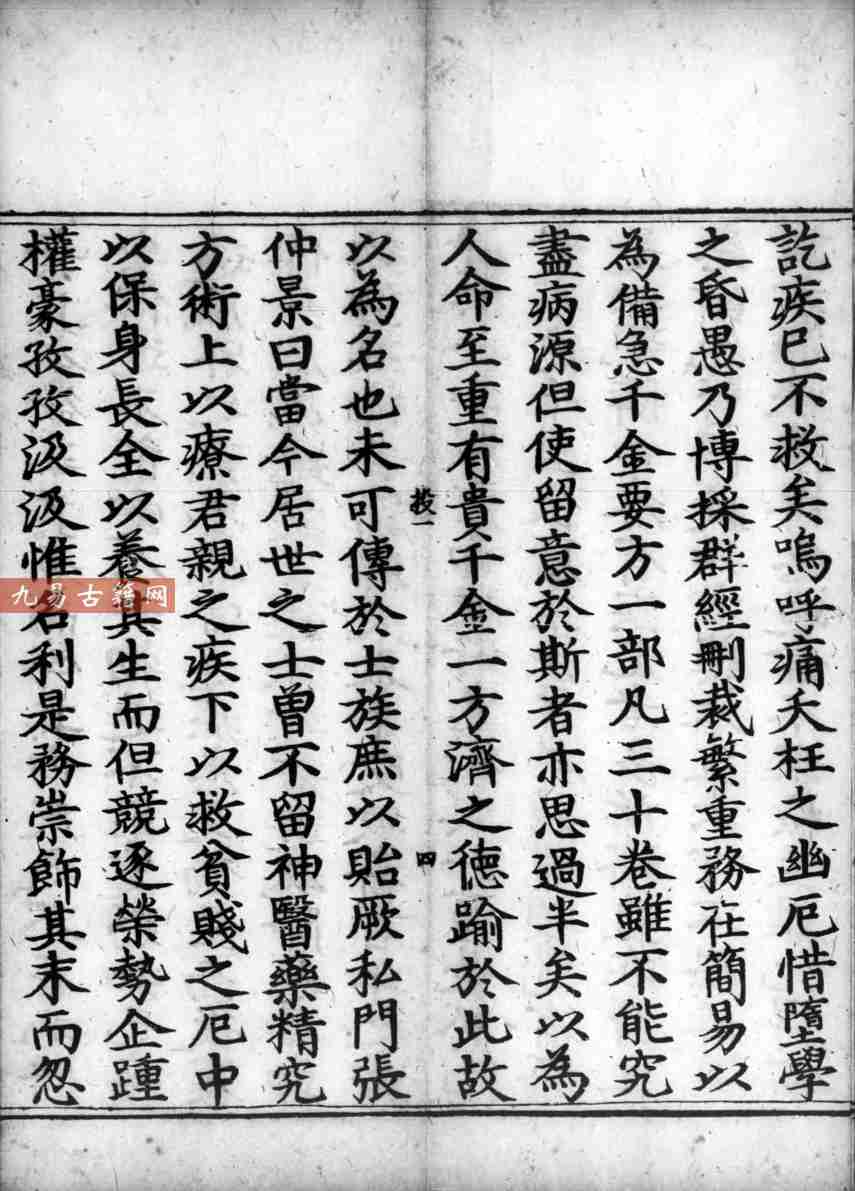 訖疾已不救矣嗚呼痛夭枉之幽厄惜墮學
之昏愚乃博採群經刪裁繁重務在簡易以
為備急千金要方一部凡三十卷雖不能究
盡病源但使留意於斯者亦思過半矣以為
人命至重有貴千金一方濟之德踰於此故
投一
四
以為名也未可傳於士族庶以貽厥私門張
仲景曰當今居世之士曾不留神醫藥精究
方術上以療君親之疾下以救貧賤之厄中
以保身長全以養其生而但競逐榮勢企踵
權豪孜孜汲汲惟名利是務崇飾其末而忽
九易古籍网